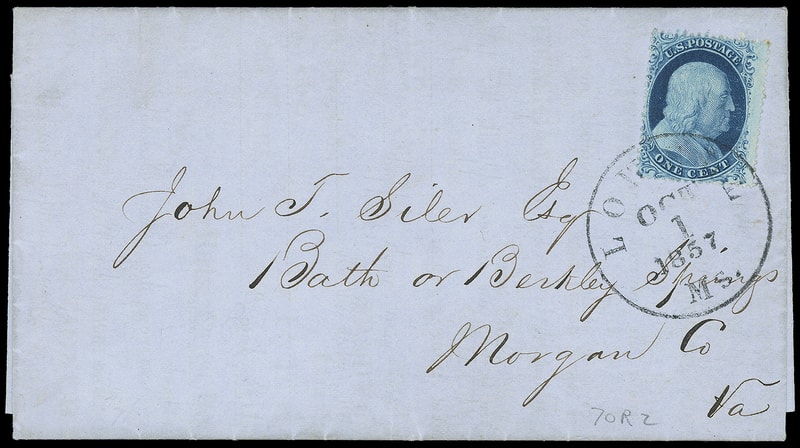 U.S. POSTAGE
ONE CENT
OCT
1
1857.
Ms.
John T. Siler Esq
Bath or Berkley Springs
Morgan Co
Va
70R2